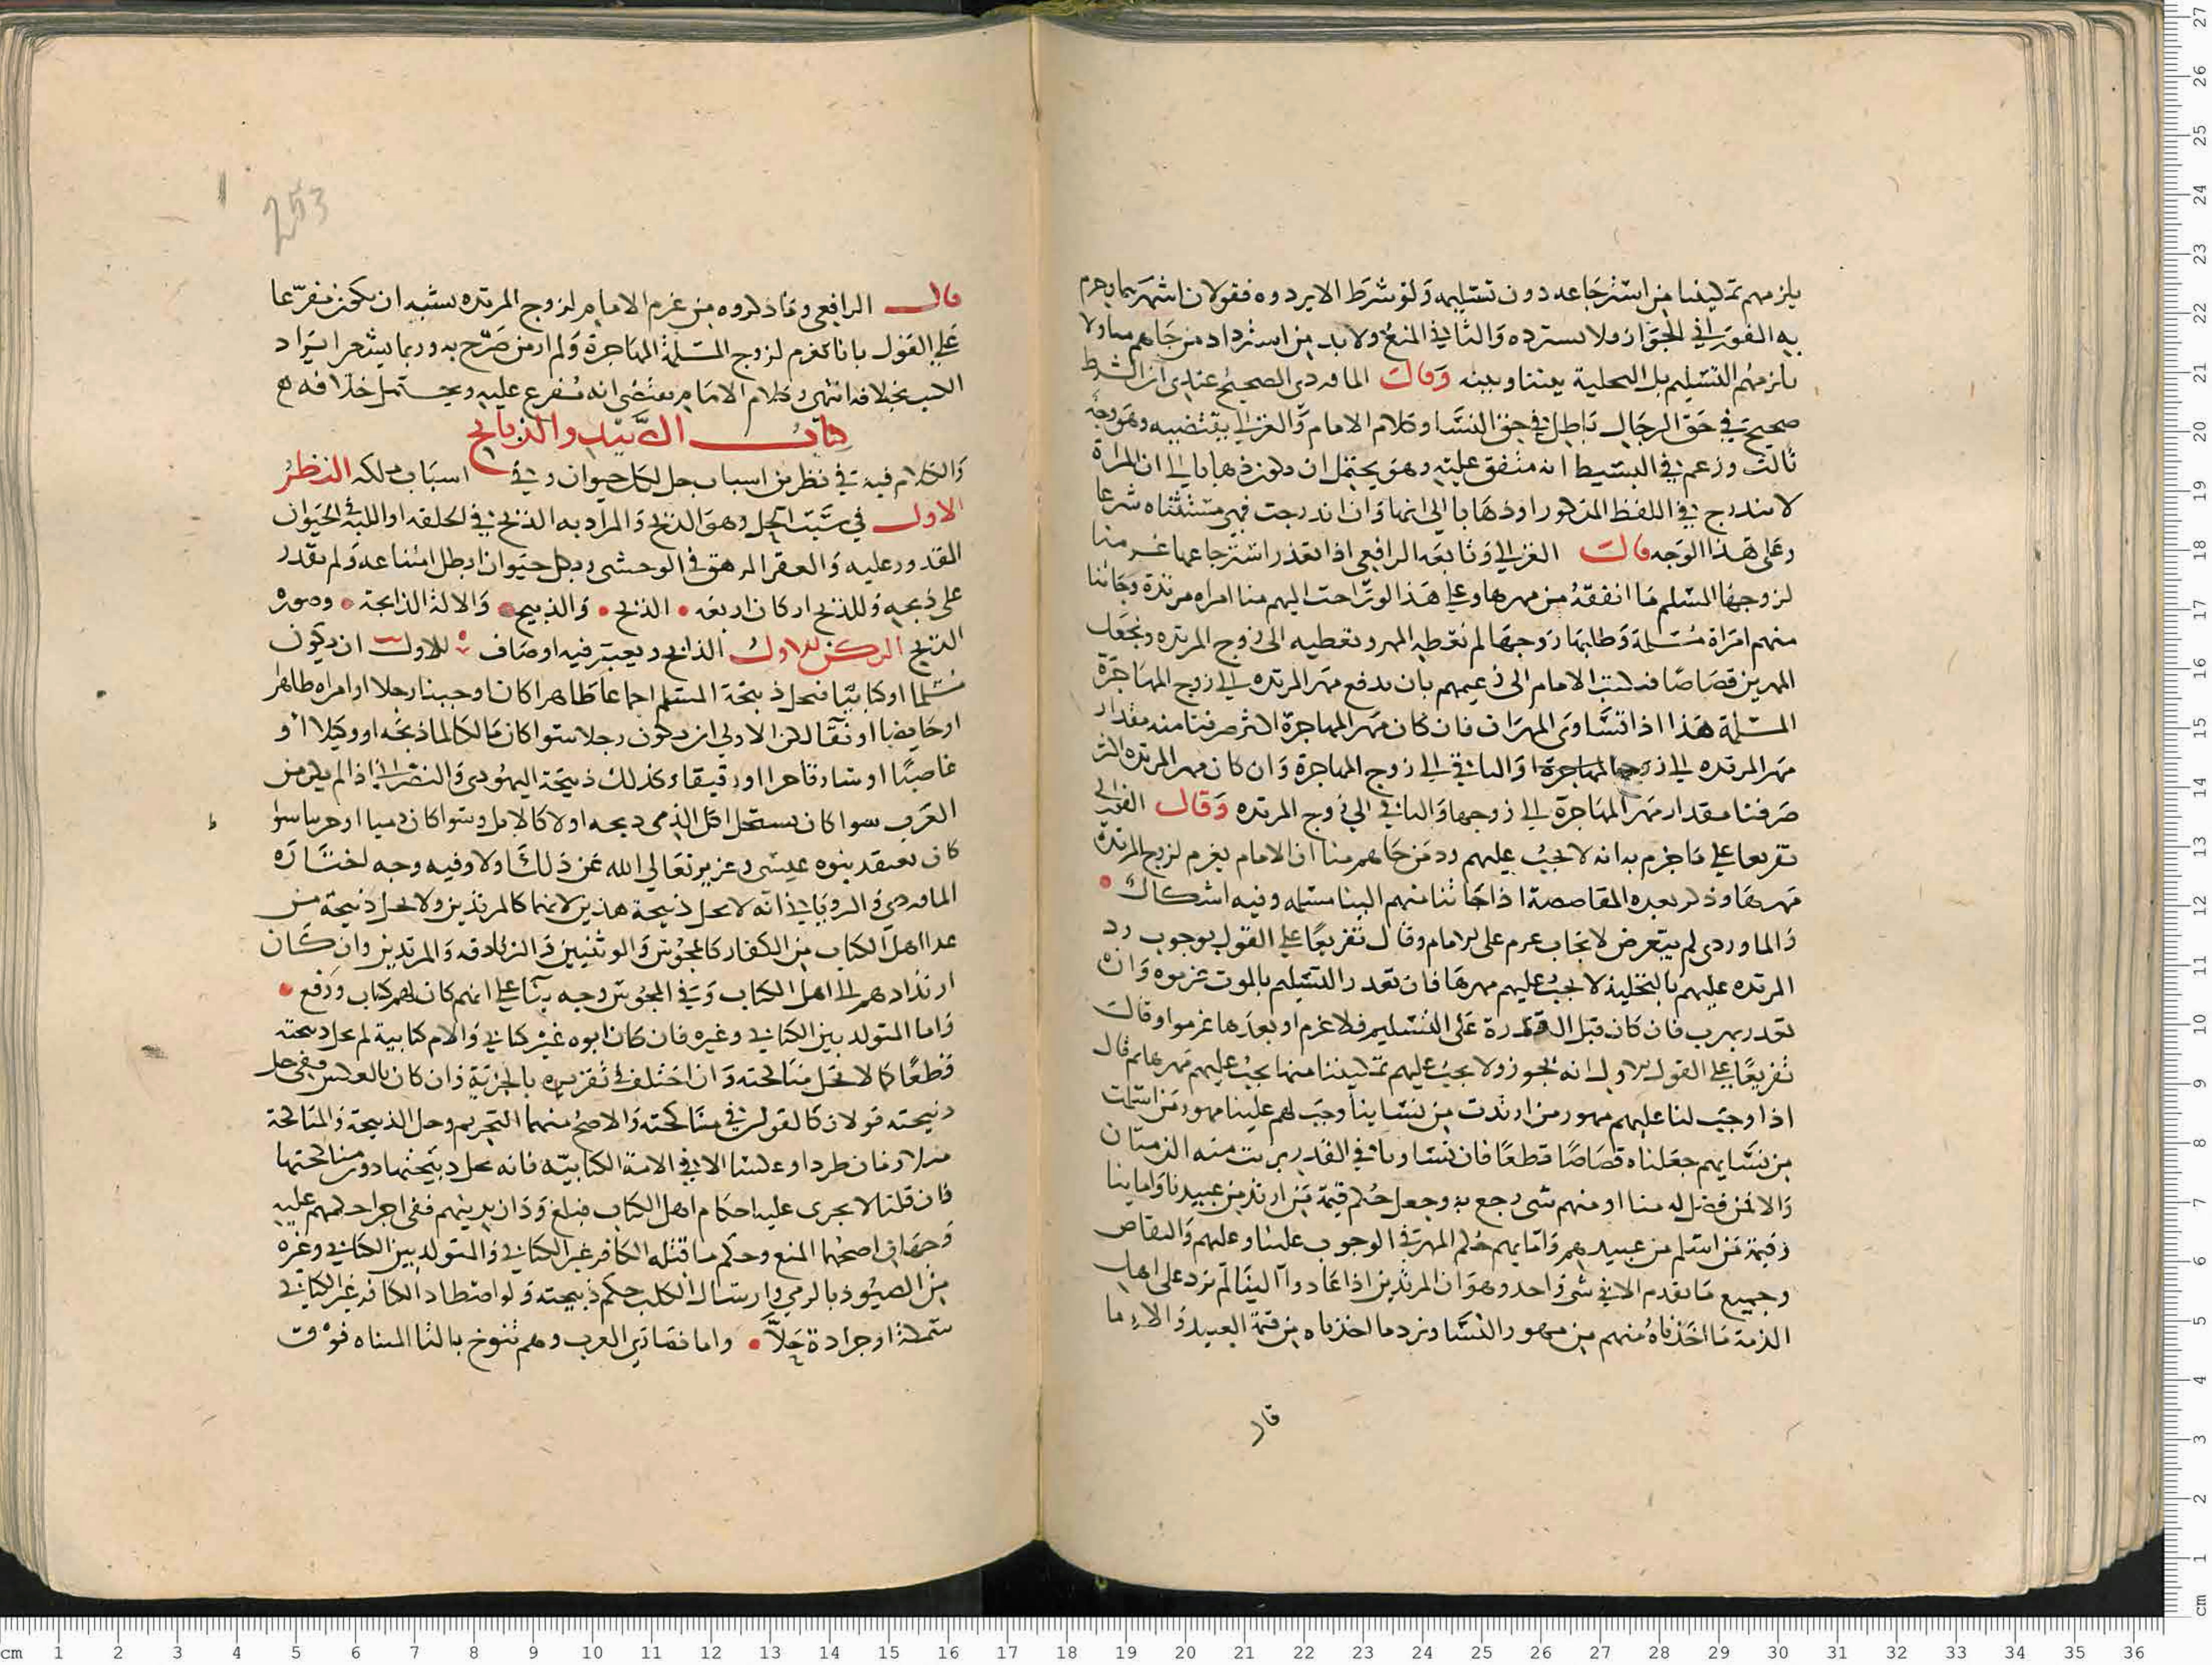 يلزمهم تمكيننا من استرجاعه دون تسليمه ولو شرط الا يردوه فقولان اشهرهما وجزم
به الفوراني الجواز ولا نسترده والثاني المنع ولا بد من استرداد من جاهم منا ولا
يلزمهم التسليم بل التخلية بيننا وبينه وقال الماوردي الصحيح عندي ان الشرط
صحيح في حق الرجال باطل في حق النسا وكلام الامام والغزالي يقتضيه وهو وجه
ثالث وزعم في البسيط انه متفق عليه وهو يحتمل ان يكون ذهابا الى ان المراة
لا تندرج في اللفظ المذكور او ذهابا الى انها وان اندرجت فهي مستثناه شرعا
وعلى هذا الوجه قال الغزالي وتابعه الرافعي اذا تعذر استرجاعها غرمنا
لزوجها المسلم ما انفقه من مهرها وعلى هذا لو راحت اليهم منا امراه مرتدة وجاتنا
منهم امراة مسلمة وطلبها زوجها لم نعطه المهر ونعطيه الى زوج المرتده ونجعل
المهرين قصاصا فيكتب الامام الى زعيمهم بان يدفع مهر المرتده الى زوج المهاجرة
المسلمة هذا اذا تساوى المهران فان كان مهر المهاجرة اكثر صرفنا منه مقدار
مهر المرتده الى زوجها والباقي الى زوج المهاجرة وان كان مهر المرتده اكثر
صرفنا مقدار مهر المهاجرة الى زوجها والباقي الى زوج المرتده وقال الغزالي
تفريعا على ما جزم به انه لا يجب عليهم رد من جاهم منا ان الامام يغرم لزوج المرتدة
مهرها وذكر بعده المقاصصة اذا جاتنا منهم الينا مسلمه وفيه اشكال
والماوردي لم يتعرض لايجاب غرم على الامام وقال تفريعا على القول بوجوب رد
المرتده عليهم بالتخلية لا يجب عليهم مهرها فان تعذر التسليم بالموت غرموه وان
تعذر بهرب فان كان قبل القدرة على التسليم فلا غرم او بعدها غرموا وقال
تفريعا على القول الاول انه يجوز ولا يجب عليهم تمكيننا منها يجب عليهم مهرها ثم قال
اذا وجب لنا عليهم مهور من ارتدت من نسائنا وجب لهم علينا مهور من اسلمت
من نسايهم جعلناه قصاصا قطعا فان تساويا في القدر بريت منه الذمتان
والا فمن فضل له منا او منهم شي رجع به وجعل حكم قيمة من ارتد من عبيدنا وامائنا
وقيمة من اسلم من عبيدهم وامايهم حكم المهر في الوجوب علينا وعليهم والتقاص
وجميع ما تقدم الا في شي واحد وهو ان المرتدين اذا عادوا الينا لم نرد على اهل
الذمة ما اخذناه منهم من مهور النسا ونرد ما اخذناه من قيمة العبيد والاما
قال
253
قال الرافعي وما ذكروه من غرم الامام لزوج المرتده يشبه ان يكون مفرعا
على القول بانا نغرم لزوج المسلمة المهاجرة ولم ار من صرح به وربما يشعر ايراد
الكتب بخلافه انتهى وكلام الامام يقتضي انه مفرع عليه ويحتمل خلافه
كتاب الصيد والذبائح
والكلام فيه في نظرين اسباب حل اكل حيوان وفي اسباب ملكه النظر
الاول في سبب الحل وهو الذبح والمراد به الذبح في الحلقه او اللبة في الحيوان
المقدور عليه والعقر المزهق في الوحشي وكل حيوان ابطل امتناعه ولم يقدر
على ذبحه وللذبح اركان اربعه الذابح والذبيح والالة الذابحة وصورة
الذبح الركن الاول الذابح ويعتبر فيه اوصاف الاول ان يكون
مسلما او كتابيا فتحل ذبيحة المسلم اجماعا ظاهرا كان او جنبا رجلا او امراه طاهرا
او حايضا او نفسا لكن الاولى ان يكون رجلا سوا كان مالكا لما ذبحه او وكيلا او
غاصبا او سارقا حرا او رقيقا وكذلك ذبيحة اليهودي والنصراني اذا لم يكن من
العرب سوا كان يستحل اكل الذي ذبحه اولا كالابل وسوا كان ذميا او حربيا سوا
كان يعتقد بنوه عيسى وعزير تعالى الله عن ذلك اولا وفيه وجه اختاره
الماوردي والروياني انه لا تحل ذبيحة هذين لانهما كالمرتدين ولا تحل ذبيحة من
عدا اهل الكتاب من الكفار كالمجوس والوثنيين والزنادقه والمرتدين وان كان
ارتدادهم الى اهل الكتاب وفي المجوس وجه بنا على انهم كان لهم كتاب ورفع
واما المتولد بين الكتابي وغيره فان كان ابوه غير كتابي والام كتابية لم تحل ذبيحته
قطعا كما لا تحل مناكحته وان اختلف في تقريره بالجزية وان كان بالعكس ففي حل
ذبيحته قولان كالقولين في مناكحته والاصح منهما التحريم وحل الذبيحة والمناكحة
متلازمان طردا وعكسا الا في الامة الكتابيه فانه تحل ذبيحتها دون مناكحتها
فان قلنا لا يجري عليه احكام اهل الكتاب فبلغ ودان بدينهم ففي اجراء حكمهم عليه
وجهان اصحهما المنع وحكم ما قتله الكافر غير الكتابي والمتولد بين الكتابي وغيره
من الصيود بالرمي وارسال الكلب حكم ذبيحته ولو اصطاد الكافر غير الكتابي
سمكة او جرادة حلا واما نصارى العرب وهم تنوخ بالتا المثناه فوق